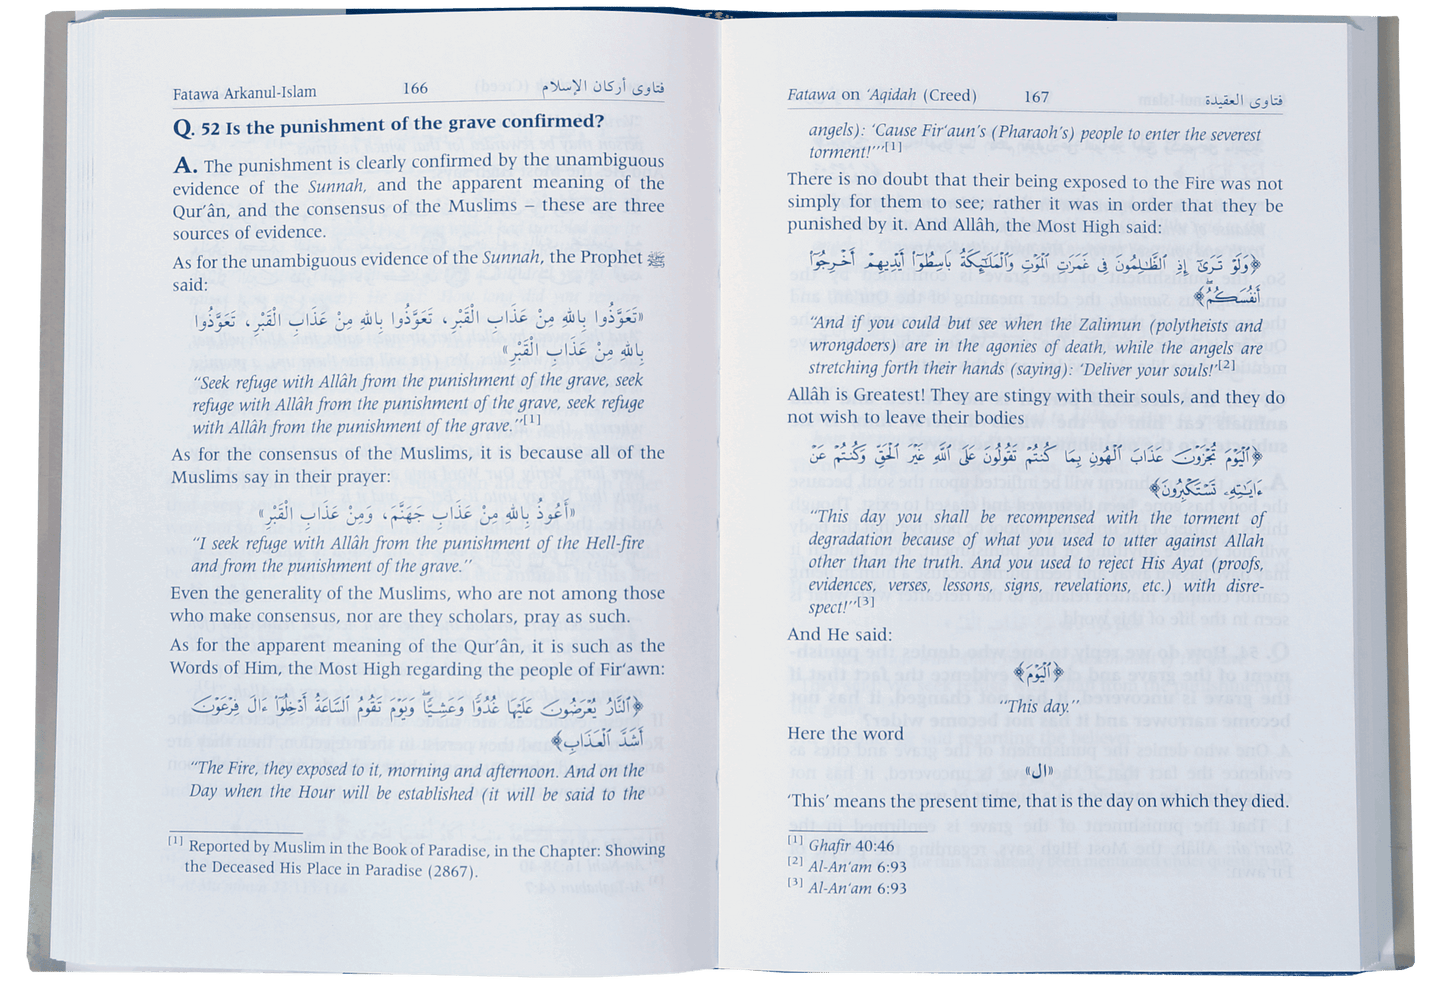 Fatawa Arkanul-Islam 166 فتاوى أركان الإسلام
Q. 52 Is the punishment of the grave confirmed?
A. The punishment is clearly confirmed by the unambiguous
evidence of the Sunnah, and the apparent meaning of the
Qur'ân, and the consensus of the Muslims – these are three
sources of evidence.
As for the unambiguous evidence of the Sunnah, the Prophet ﷺ
said:
«تَعَوَّذُوا بِاللهِ مِنْ عَذَابِ الْقَبْرِ، تَعَوَّذُوا بِاللهِ مِنْ عَذَابِ الْقَبْرِ، تَعَوَّذُوا
بِاللهِ مِنْ عَذَابِ الْقَبْرِ»
“Seek refuge with Allâh from the punishment of the grave, seek
refuge with Allâh from the punishment of the grave, seek refuge
with Allâh from the punishment of the grave.”[1]
As for the consensus of the Muslims, it is because all of the
Muslims say in their prayer:
«أَعُوذُ بِاللهِ مِنْ عَذَابِ جَهَنَّمَ، وَمِنْ عَذَابِ الْقَبْرِ»
“I seek refuge with Allâh from the punishment of the Hell-fire
and from the punishment of the grave.”
Even the generality of the Muslims, who are not among those
who make consensus, nor are they scholars, pray as such.
As for the apparent meaning of the Qur'ân, it is such as the
Words of Him, the Most High regarding the people of Fir‘awn:
﴿ٱلنَّارُ يُعْرَضُونَ عَلَيْهَا غُدُوًّا وَعَشِيًّا ۖ وَيَوْمَ تَقُومُ ٱلسَّاعَةُ أَدْخِلُوٓا۟ ءَالَ فِرْعَوْنَ
أَشَدَّ ٱلْعَذَابِ﴾
“The Fire, they exposed to it, morning and afternoon. And on the
Day when the Hour will be established (it will be said to the
[1] Reported by Muslim in the Book of Paradise, in the Chapter: Showing
the Deceased His Place in Paradise (2867).
Fatawa on ‘Aqidah (Creed) 167 فتاوى العقيدة
angels): ‘Cause Fir‘aun’s (Pharaoh’s) people to enter the severest
torment!’”[1]
There is no doubt that their being exposed to the Fire was not
simply for them to see; rather it was in order that they be
punished by it. And Allâh, the Most High said:
﴿وَلَوْ تَرَىٰٓ إِذِ ٱلظَّٰلِمُونَ فِى غَمَرَٰتِ ٱلْمَوْتِ وَٱلْمَلَٰٓئِكَةُ بَاسِطُوٓا۟ أَيْدِيهِمْ أَخْرِجُوٓا۟
أَنفُسَكُمُ ۖ﴾
“And if you could but see when the Zalimun (polytheists and
wrongdoers) are in the agonies of death, while the angels are
stretching forth their hands (saying): ‘Deliver your souls!’”[2]
Allâh is Greatest! They are stingy with their souls, and they do
not wish to leave their bodies
﴿ٱلْيَوْمَ تُجْزَوْنَ عَذَابَ ٱلْهُونِ بِمَا كُنتُمْ تَقُولُونَ عَلَى ٱللَّهِ غَيْرَ ٱلْحَقِّ وَكُنتُمْ عَنْ
ءَايَٰتِهِۦ تَسْتَكْبِرُونَ﴾
“This day you shall be recompensed with the torment of
degradation because of what you used to utter against Allah
other than the truth. And you used to reject His Ayat (proofs,
evidences, verses, lessons, signs, revelations, etc.) with disre-
spect!”[3]
And He said:
﴿ٱلْيَوْمَ﴾
“This day.”
Here the word
«ال»
‘This’ means the present time, that is the day on which they died.
[1] Ghafir 40:46
[2] Al-An‘am 6:93
[3] Al-An‘am 6:93